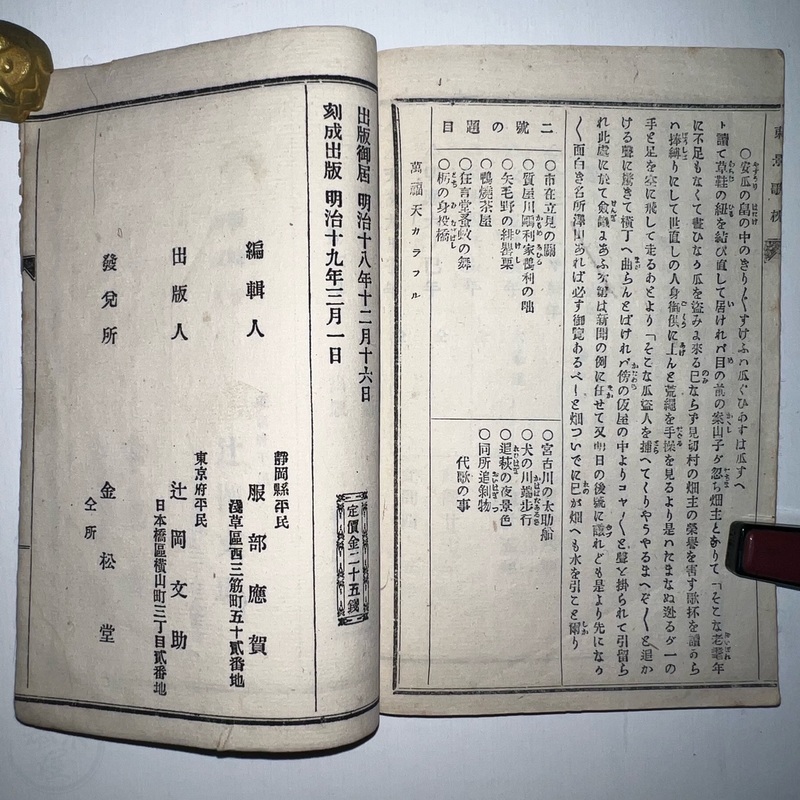 ○安瓜の畠の中のきり〱すけふハ瓜くひあすは瓜すへ
ト讀て草鞋の紐を結び直して居けれバ目の前の案山子ダ忽ち畑主となりて「そこな老耄年
に不足もなくて晝ひなか瓜を盗みよ來る已ならず見切村の畑主の榮譽を害す歌抔を讀
ハ捧縛りにして世直しの人身御供に上んと荒繩を手操を見るより是ハたまなぬ迯るダ一の
手と足を空に飛して走るあとより「そこな瓜盗人を捕へてくりやうやるまへぞ〱と追か
ける聲に驚きて横丁へ曲らんとすれバ傍の仮屋の中よりコャ〱と聲を掛られて引留ら
れ此處に於て僉議
新聞の例に任せて又明日の後號に讓れども是より先になり
〱面白き名所澤山あれば必ず御覽あるべしと畑ついでに巳が畑へも水を引こと爾り
二號の題目
○市在立見の關
○質屋川鷗利家鶩利の咄
○矢毛野の緋罌粟
○鴨燒茶屋
○狂言堂蚤蚊の舞
○栃の身投橋
○宮古川の太助船
○犬の川端歩行
○追萩の夜景色
○同所追剝物
代歌の事
萬頑天カラフル
出版御届 明治十八年十二月十六日
刻成出版 明治十九年三月一日
定價金二十五錢
編輯人
靜岡縣平民
服部應賀
淺草區西三筋町五十貳番地
出版人
東京府平民
辻岡文助
日本橋區横山町三丁目貳番地
發兌所
金松堂
仝所